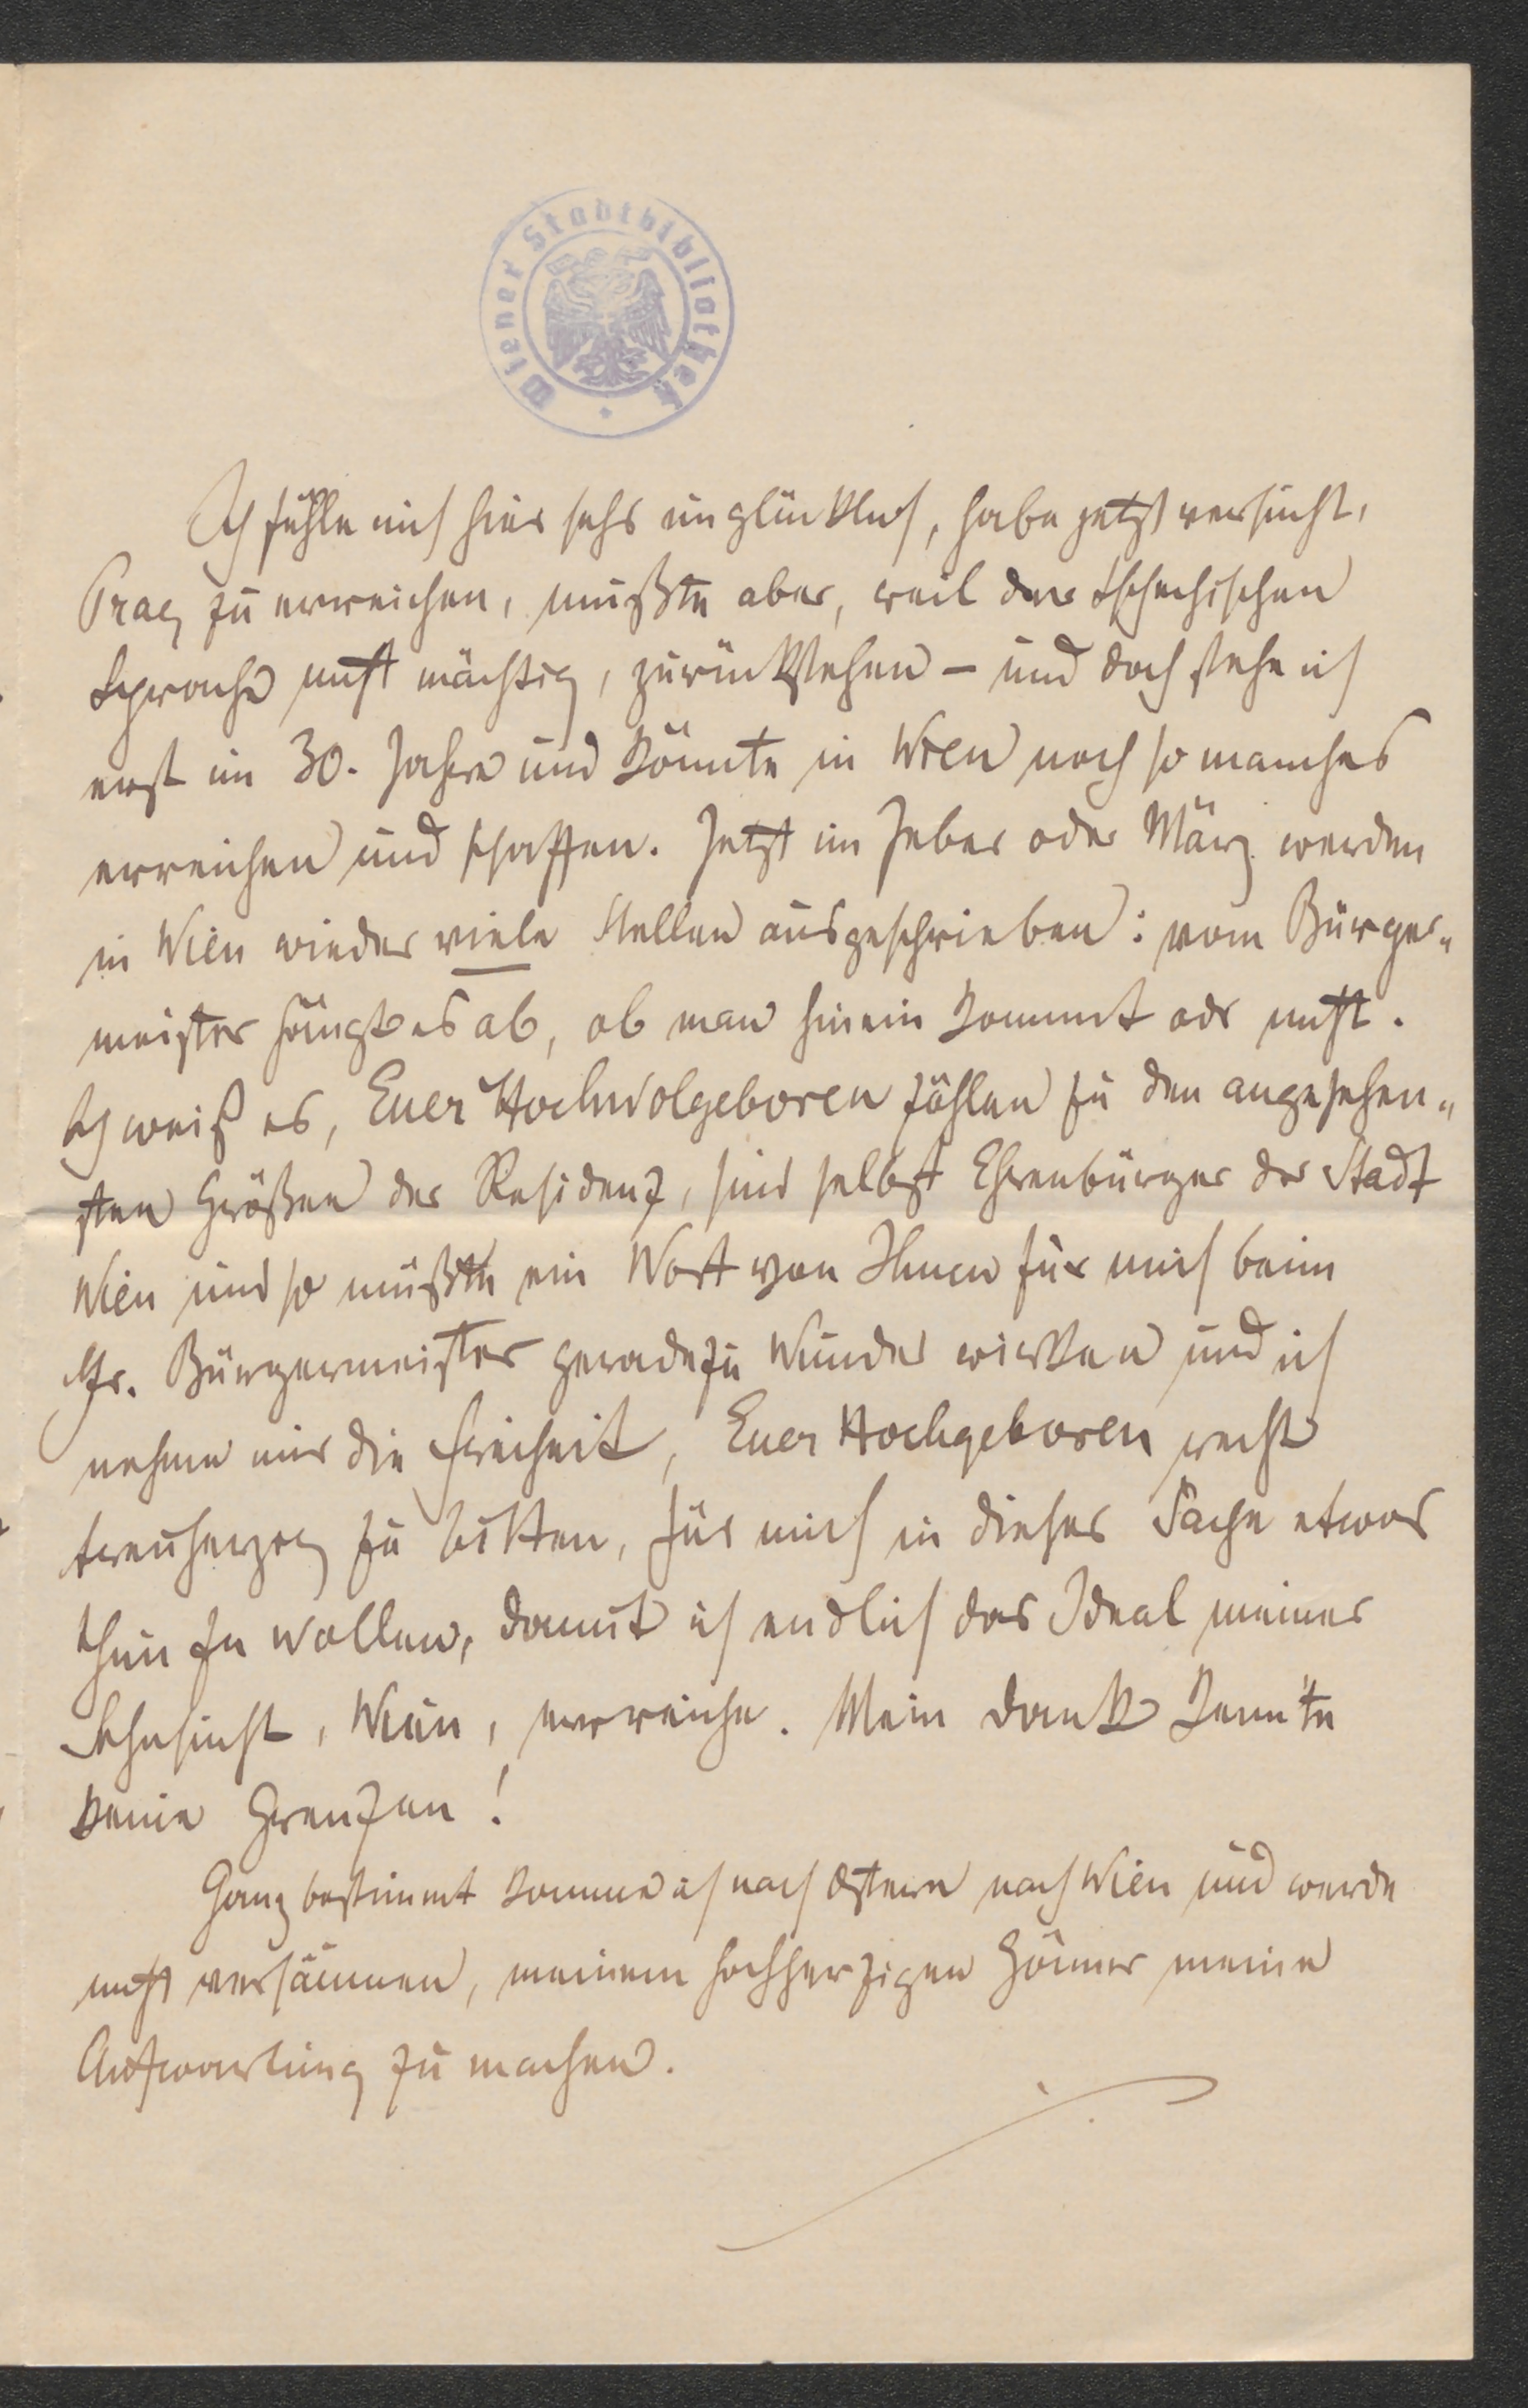 Wiener Stadtbibliothek
Ich fühle mich hier sehr unglücklich, habe jetzt versucht,
Prag zu erreichen, mußte aber, weil der tschechischen
Sprache nicht mächtig, zurückstehen – und doch stehe ich
erst im 30. Jahre und könnte in Wien noch so manches
erreichen und schaffen. Jetzt im Feber oder März werden
in Wien wieder viele Stellen ausgeschrieben: vom Bürger„
meister hängt es ab, ob man hinein kommt oder nicht.
Ich weiß es, Euer Hochwolgeboren zählen zu den angesehen„
sten Größen der Residenz, sind selbst Ehrenbürger der Stadt
Wien und so müßte ein Wort von Ihnen für mich beim
Hr. Bürgermeister geradezu Wunder wirken und ich
nehme mir die Freiheit, Euer Hochgeboren recht
treuherzig zu bitten, für mich in dieser Sache etwas
thun zu wollen, damit ich endlich das Ideal meiner
Sehnsucht, Wien, erreiche. Mein Dank kennte
keine Grenzen!
Ganz bestimmt komme ich nach Ostern nach Wien und werde
nicht versäumen, meinem hochherzigen Gönner meine
Aufwartung zu machen.